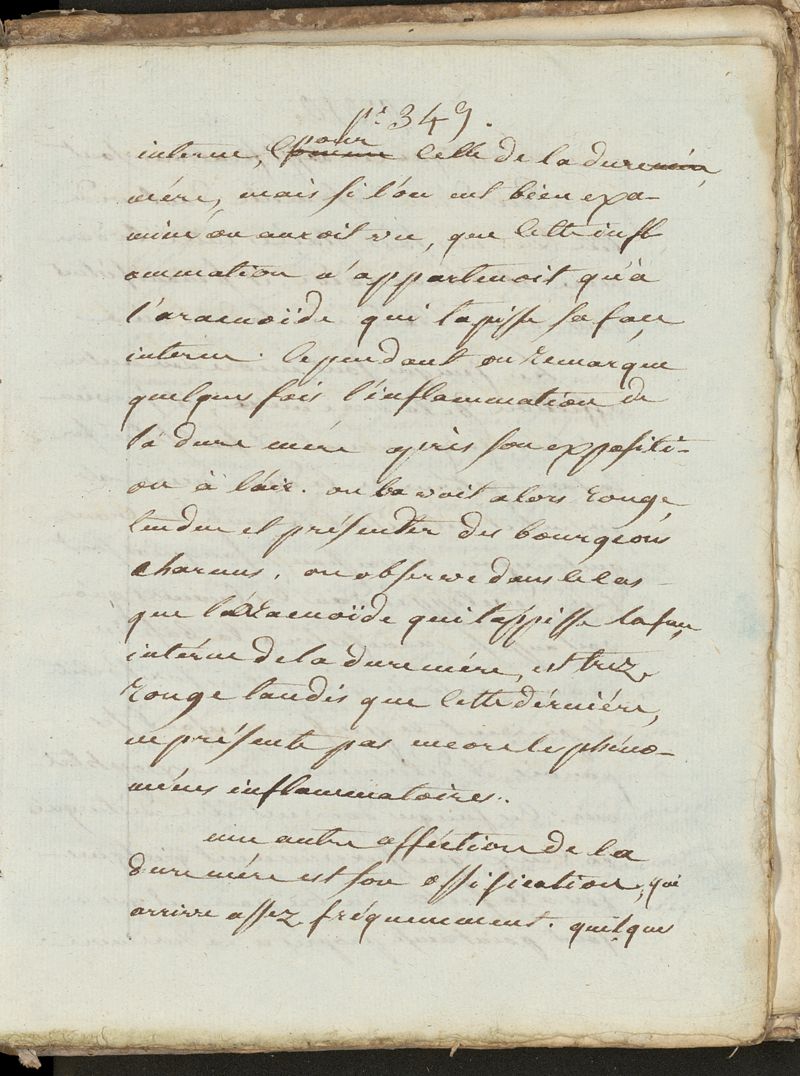 pe. 349.
interne, pour celle de la dure
mére, mais si l'on eut bien exa-
miné on auroit vu, que cette infl
ammation n'appartenoit qu'à
l'aracnoïde qui tapisse sa face
interne. cependant on remarque
quelques fois l'inflammation de
la dure mére aprés son expositi-
on à l'air. on la voit alors rouge,
tendue et présenter des bourgeons
charnus, on observe dans le cas
que l'aracnoïde qui tappisse la face
intérne de la dure mére, est trez
rouge tandis que cette dérniére,
ne présente pas encore le phéno-
ménes inflammatoires.
une autre afféction de la
dure mére est son ossification, qui
arrive assez fréquemment. quelques